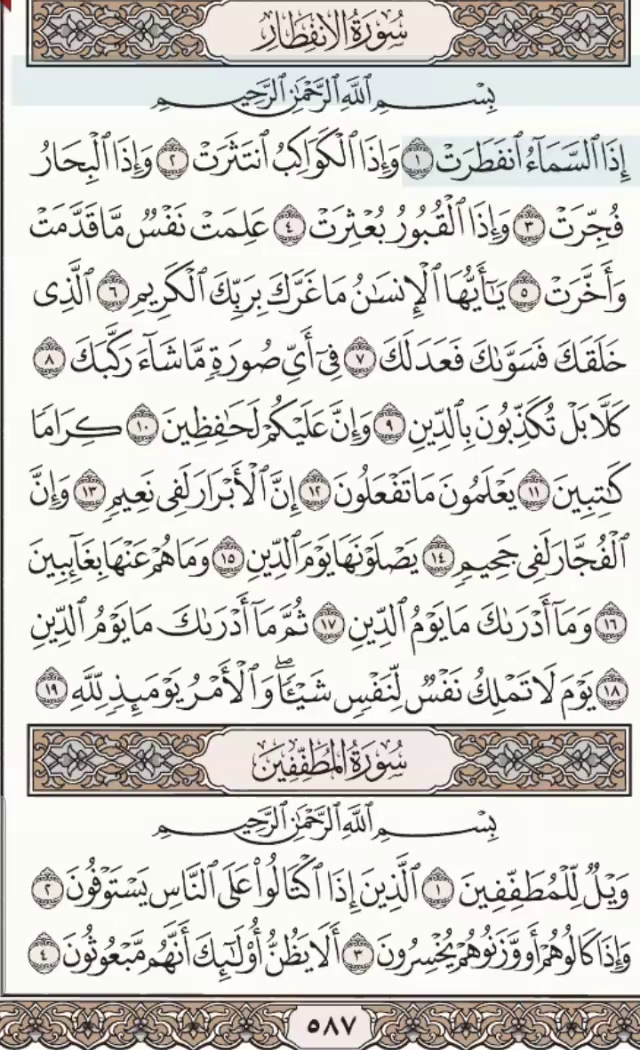 سُورَةُ الِانفِطَارِ
بِسْمِ ٱللَّهِ ٱلرَّحْمَٰنِ ٱلرَّحِيمِ
إِذَا ٱلسَّمَآءُ ٱنفَطَرَتْ ١ وَإِذَا ٱلْكَوَاكِبُ ٱنتَثَرَتْ ٢ وَإِذَا ٱلْبِحَارُ
فُجِّرَتْ ٣ وَإِذَا ٱلْقُبُورُ بُعْثِرَتْ ٤ عَلِمَتْ نَفْسٌ مَّا قَدَّمَتْ
وَأَخَّرَتْ ٥ يَٰٓأَيُّهَا ٱلْإِنسَٰنُ مَا غَرَّكَ بِرَبِّكَ ٱلْكَرِيمِ ٦ ٱلَّذِى
خَلَقَكَ فَسَوَّىٰكَ فَعَدَلَكَ ٧ فِىٓ أَىِّ صُورَةٍ مَّا شَآءَ رَكَّبَكَ ٨
كَلَّا بَلْ تُكَذِّبُونَ بِٱلدِّينِ ٩ وَإِنَّ عَلَيْكُمْ لَحَٰفِظِينَ ١٠ كِرَامًا
كَٰتِبِينَ ١١ يَعْلَمُونَ مَا تَفْعَلُونَ ١٢ إِنَّ ٱلْأَبْرَارَ لَفِى نَعِيمٍ ١٣ وَإِنَّ
ٱلْفُجَّارَ لَفِى جَحِيمٍ ١٤ يَصْلَوْنَهَا يَوْمَ ٱلدِّينِ ١٥ وَمَا هُمْ عَنْهَا بِغَآئِبِينَ
١٦ وَمَآ أَدْرَىٰكَ مَا يَوْمُ ٱلدِّينِ ١٧ ثُمَّ مَآ أَدْرَىٰكَ مَا يَوْمُ ٱلدِّينِ
١٨ يَوْمَ لَا تَمْلِكُ نَفْسٌ لِّنَفْسٍ شَيْـًٔا ۖ وَٱلْأَمْرُ يَوْمَئِذٍ لِّلَّهِ ١٩
سُورَةُ المُطَفِّفِينَ
بِسْمِ ٱللَّهِ ٱلرَّحْمَٰنِ ٱلرَّحِيمِ
وَيْلٌ لِّلْمُطَفِّفِينَ ١ ٱلَّذِينَ إِذَا ٱكْتَالُوا۟ عَلَى ٱلنَّاسِ يَسْتَوْفُونَ ٢
وَإِذَا كَالُوهُمْ أَو وَّزَنُوهُمْ يُخْسِرُونَ ٣ أَلَا يَظُنُّ أُو۟لَٰٓئِكَ أَنَّهُم مَّبْعُوثُونَ ٤
٥٨٧